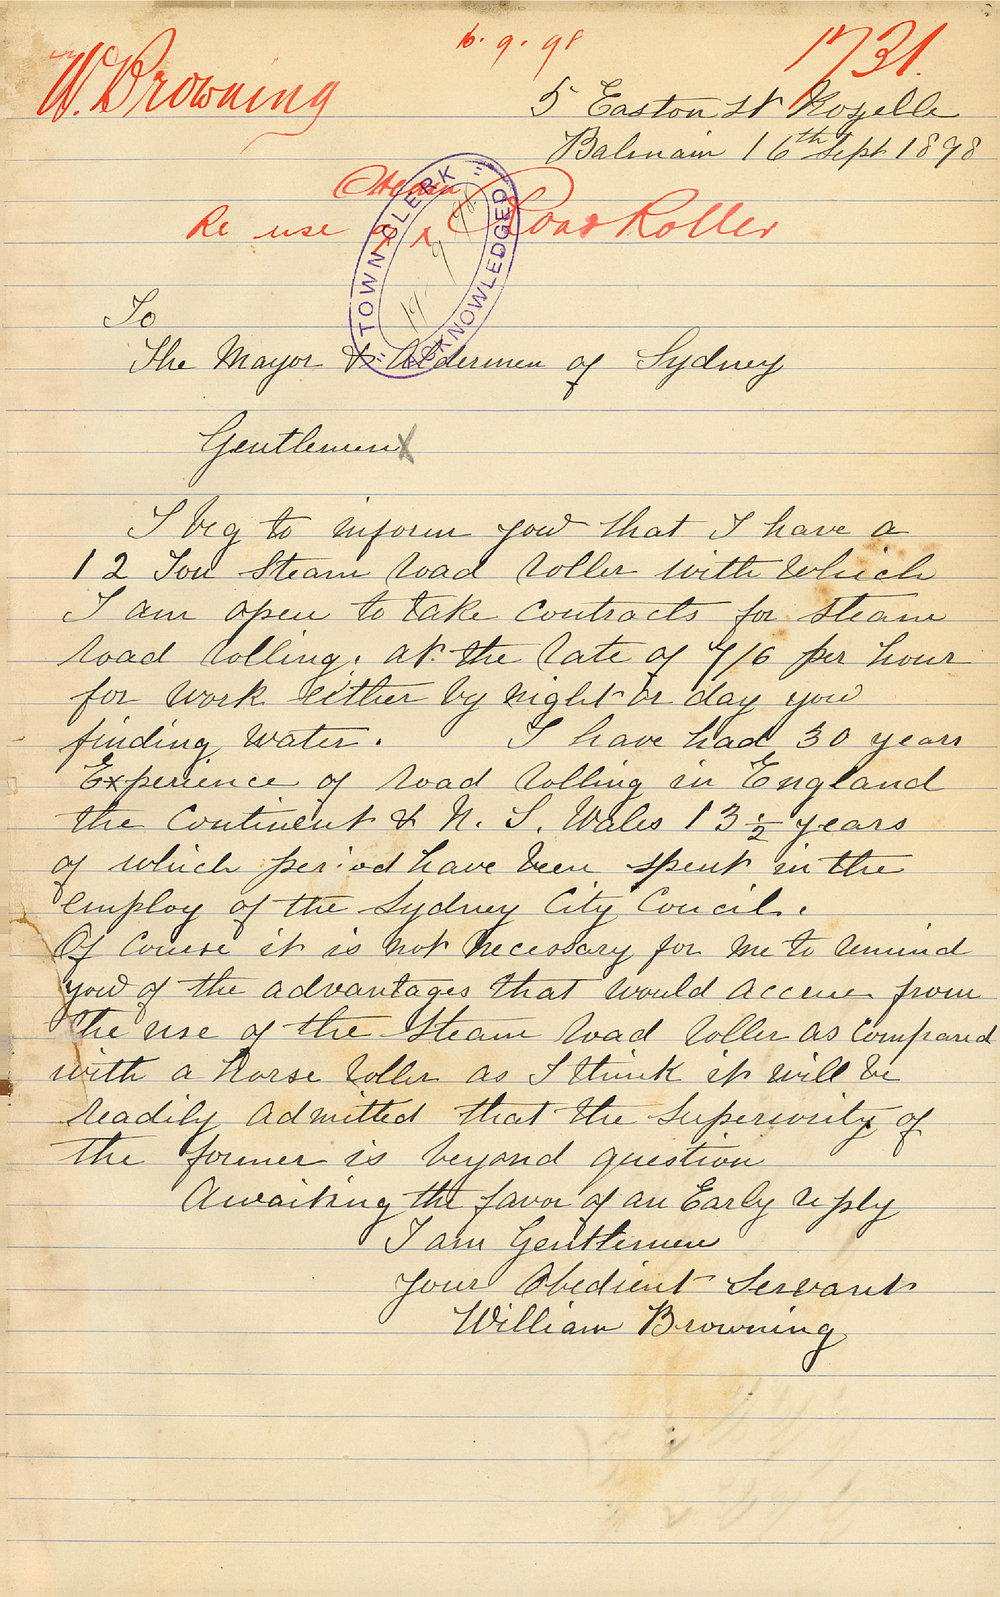 16.9.98
1731.
W. Browning
5 Easton St Rozelle
Balmain 16th Sept 1898
Steam
Re use of Road Roller
"TOWN CLERK"
ACKNOWLEDGED
19.9.98
To
The Mayor & Aldermen of Sydney
Gentlemen
I beg to inform you that I have a
12 Ton Steam road roller with which
I am open to take contracts for steam
road rolling. at the rate of 7/6 per hour
for work either by night or day you
finding water. I have had 30 years
Experience of road rolling in England
the Continent & N. S. Wales 13 1/2 years
of which period have been spent in the
employ of the Sydney City Concil.
Of course it is not necessary for me to remind
you of the advantages that would accrue from
the use of the Steam road roller as compared
with a horse roller as I think it will be
readily admitted that the superiority of
the former is beyond question
Awaiting the favor of an Early reply
I am Gentlemen
Your Obedient Servant
William Browning